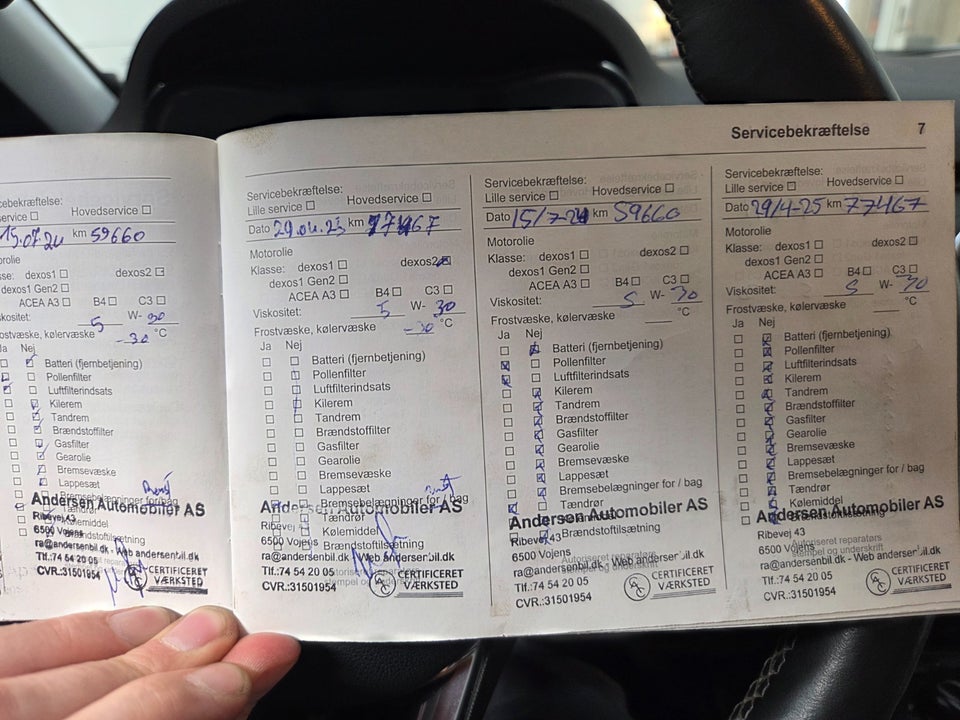 Servicebekræftelse 7
service Hovedservice
15.07.24 km 59660
orolie
sse: dexos1 dexos2
dexos1 Gen2
ACEA A3 B4 C3
skositet: 5 W- 30
ostvæske, kølervæske -30 °C
Ja Nej
Batteri (fjernbetjening)
Pollenfilter
Luftfilterindsats
Kilerem
Tandrem
Brændstoffilter
Gasfilter
Gearolie
Bremsevæske
Lappesæt
Bremsebelægninger for/bag
Tændrør
Kølemiddel
Andersen Automobiler AS
Ribevej 43
6500 Vojens
ra@andersenbil.dk - Web andersenbil.dk
Tlf.:74 54 20 05
CVR.:31501954
CERTIFICERET
VÆRKSTED
Servicebekræftelse:
Lille service Hovedservice
Dato 29.04.23 km 77467
Motorolie
Klasse: dexos1 dexos2
dexos1 Gen2
ACEA A3 B4 C3
Viskositet: 5 W- 30
Frostvæske, kølervæske -30 °C
Ja Nej
Batteri (fjernbetjening)
Pollenfilter
Luftfilterindsats
Kilerem
Tandrem
Brændstoffilter
Gasfilter
Gearolie
Bremsevæske
Lappesæt
Bremsebelægninger for / bag
Tændrør
Kølemiddel
Brændstoftilsætning
Andersen Automobiler AS
Ribevej 43
6500 Vojens
ra@andersenbil.dk - Web andersenbil.dk
Tlf.:74 54 20 05
CVR.:31501954
CERTIFICERET
VÆRKSTED
Servicebekræftelse:
Lille service Hovedservice
Dato 15/7-24 km 59660
Motorolie
Klasse: dexos1 dexos2
dexos1 Gen2
ACEA A3 B4 C3
Viskositet: 5 W- 30
Frostvæske, kølervæske °C
Ja Nej
Batteri (fjernbetjening)
Pollenfilter
Luftfilterindsats
Kilerem
Tandrem
Brændstoffilter
Gasfilter
Gearolie
Bremsevæske
Lappesæt
Bremsebelægninger for / bag
Tændrør
Andersen Automobiler AS
Brændstoftilsætning
Ribevej 43
6500 Vojens
Autoriseret reparatørs
stempel og underskrift
ra@andersenbil.dk - Web andersenbil.dk
Tlf.:74 54 20 05
CVR.:31501954
CERTIFICERET
VÆRKSTED
Servicebekræftelse:
Lille service Hovedservice
Dato 29/4-25 km 77467
Motorolie
Klasse: dexos1 dexos2
dexos1 Gen2
ACEA A3 B4 C3
Viskositet: 5 W- 30
Frostvæske, kølervæske °C
Ja Nej
Batteri (fjernbetjening)
Pollenfilter
Luftfilterindsats
Kilerem
Tandrem
Brændstoffilter
Gasfilter
Gearolie
Bremsevæske
Lappesæt
Bremsebelægninger for / bag
Tændrør
Kølemiddel
Andersen Automobiler AS
Brændstoftilsætning
Ribevej 43
6500 Vojens
Autoriseret reparatørs
stempel og underskrift
ra@andersenbil.dk - Web andersenbil.dk
Tlf.:74 54 20 05
CVR.:31501954
CERTIFICERET
VÆRKSTED